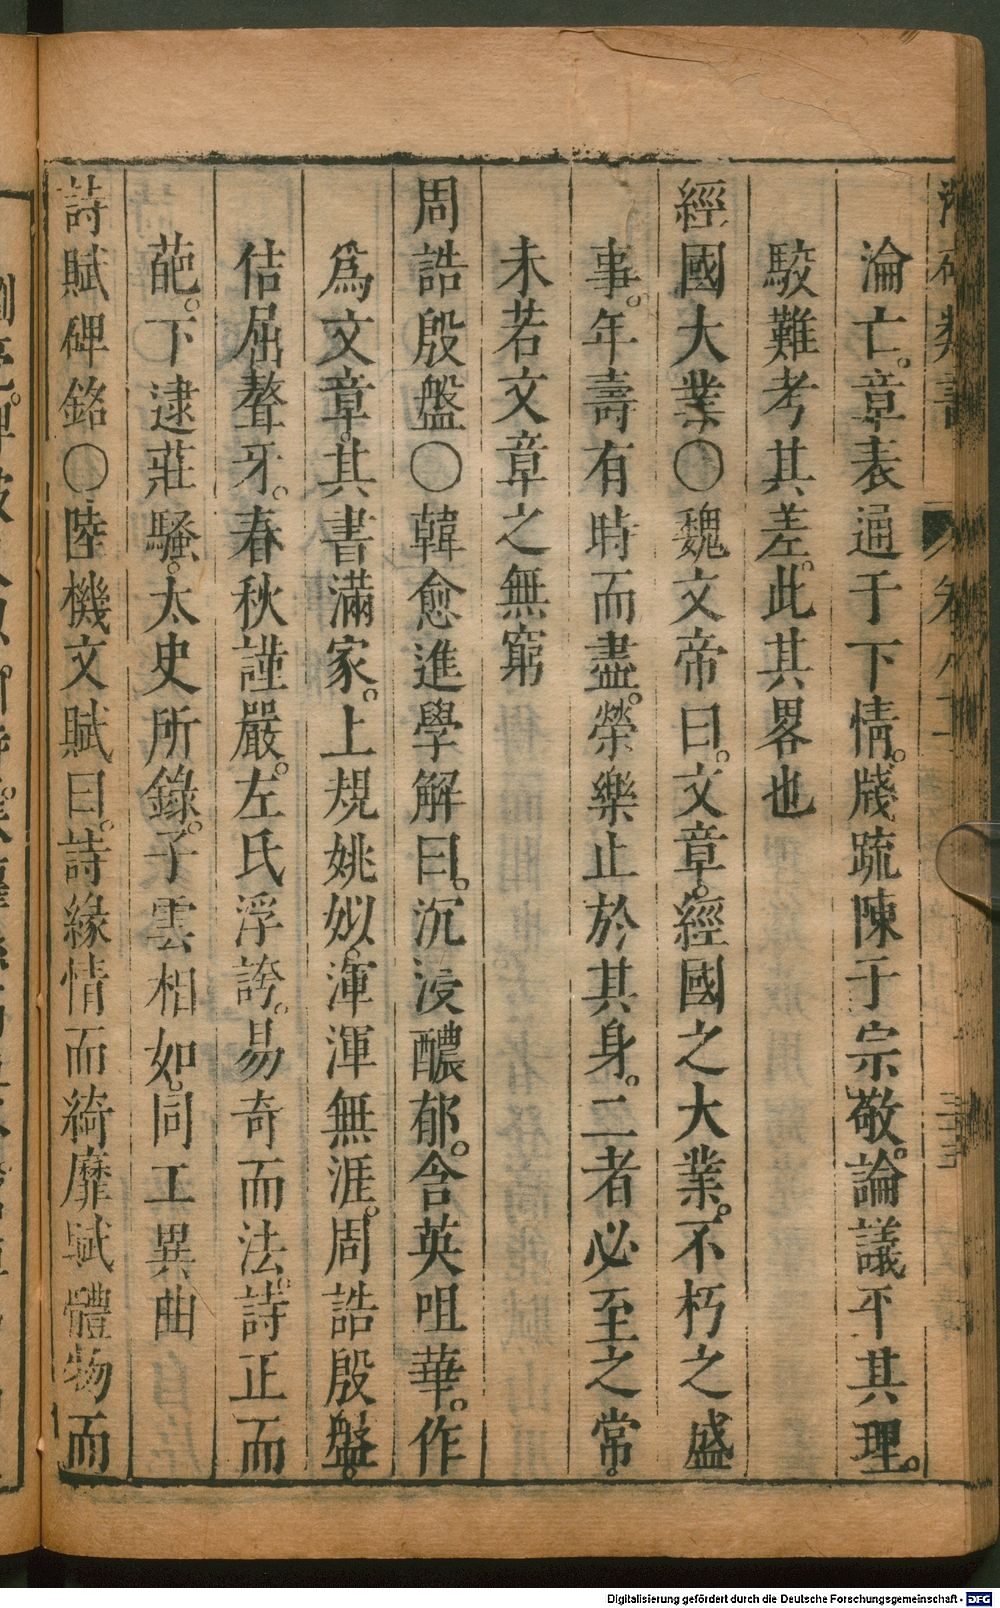 淪亡。章表通于下情。牋疏陳于宗敬。論議平其理。
駮難考其差。此其畧也
經國大業○魏文帝曰。文章。經國之大業。不朽之盛
事。年壽有時而盡。榮樂止於其身。二者必至之常。
未若文章之無窮
周誥殷盤○韓愈進學解曰。沉浸醲郁。含英咀華。作
為文章。其書滿家。上規姚姒。渾渾無涯。周誥殷盤。
佶屈聱牙。春秋謹嚴。左氏浮誇。易奇而法。詩正而
葩。下逮莊騷。太史所錄。子雲相如。同工異曲
詩賦碑銘○陸機文賦曰。詩緣情而綺靡賦體物而
Digitalisierung gefördert durch die Deutsche Forschungsgemeinschaft - DFG